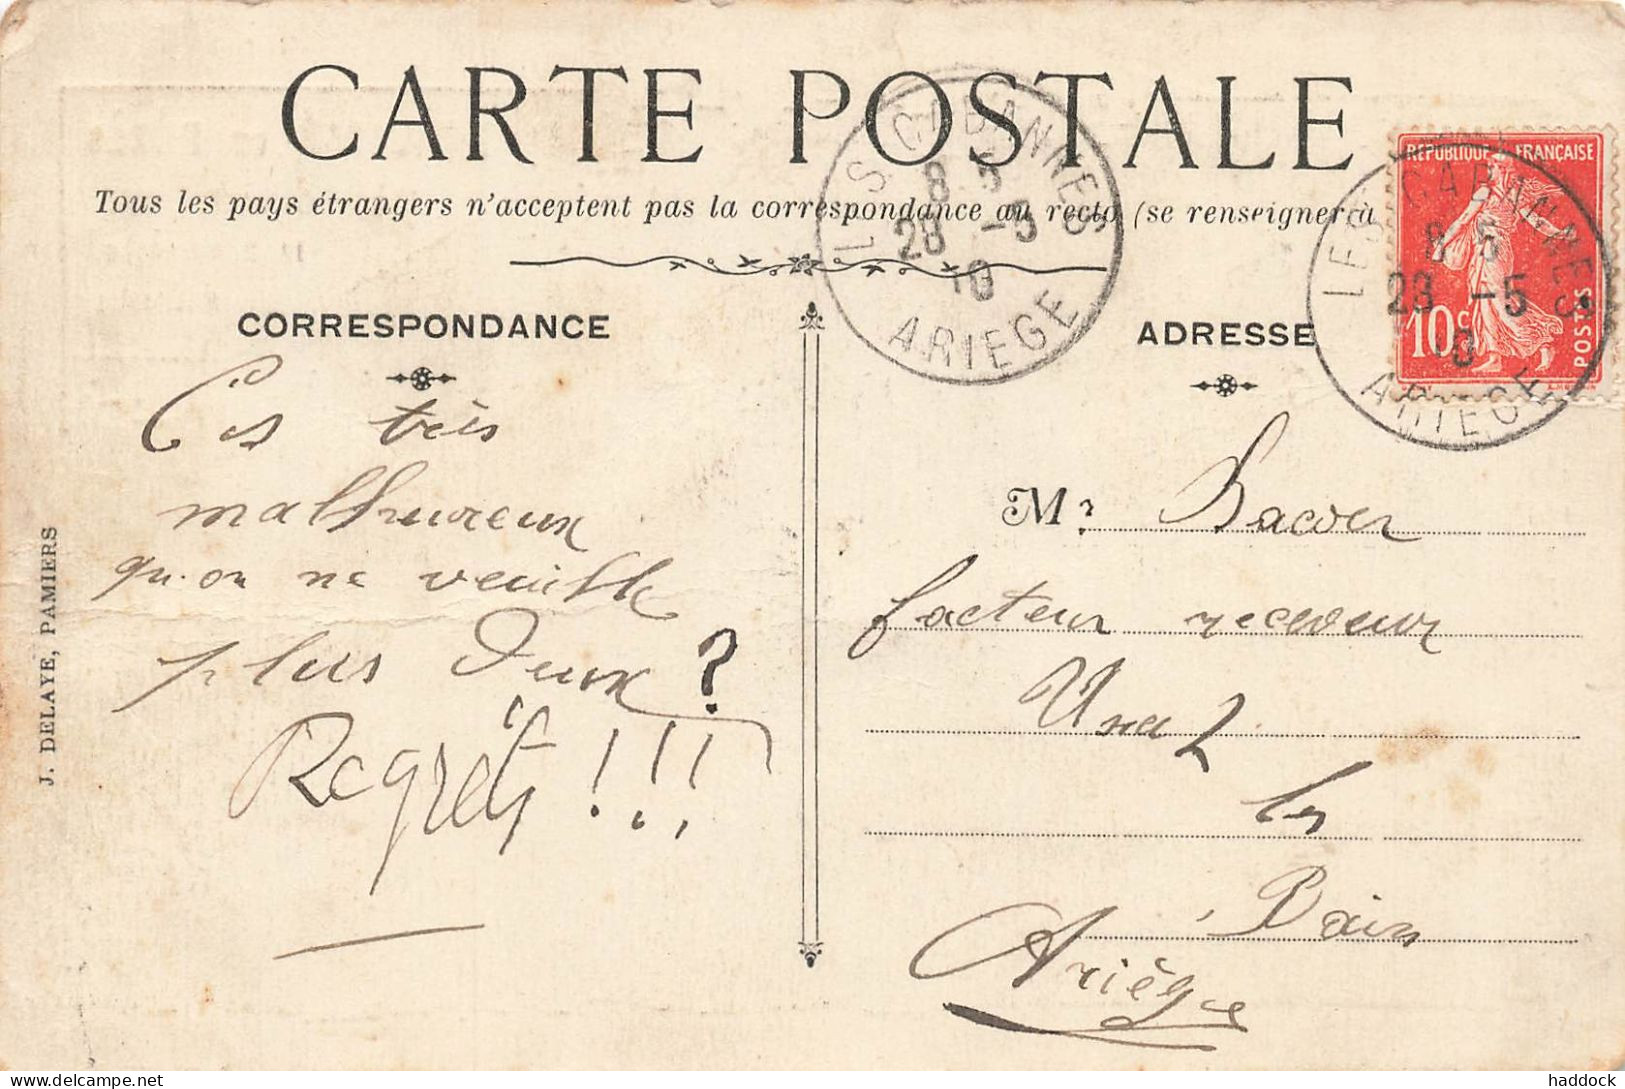 CARTE POSTALE
Tous les pays étrangers n'acceptent pas la correspondance au recto (se renseigner à
CORRESPONDANCE
Ces très
malhureux
qu'on ne veuille
plus d'eux ?
Regrêts !!!
J. DELAYE, PAMIERS
LES CABANNES
8 5
28 -5
10
ARIEGE
ADRESSE
RÉPUBLIQUE FRANÇAISE
10c
POSTES
LES CABANNES
8 5
28 -5
10
ARIEGE
Mr
facteur receveur
les
Bains
Ariège
haddock